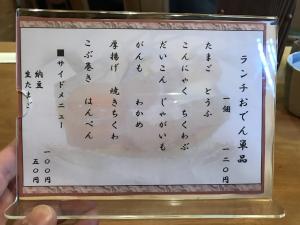 ランチおでん単品
一個 一二〇円
たまご とうふ
こんにゃく ちくわぶ
だいこん じゃがいも
がんも わかめ
厚揚げ 焼きちくわ
こぶ巻き はんぺん
■サイドメニュー
納豆 一〇〇円
生たまご 五〇円